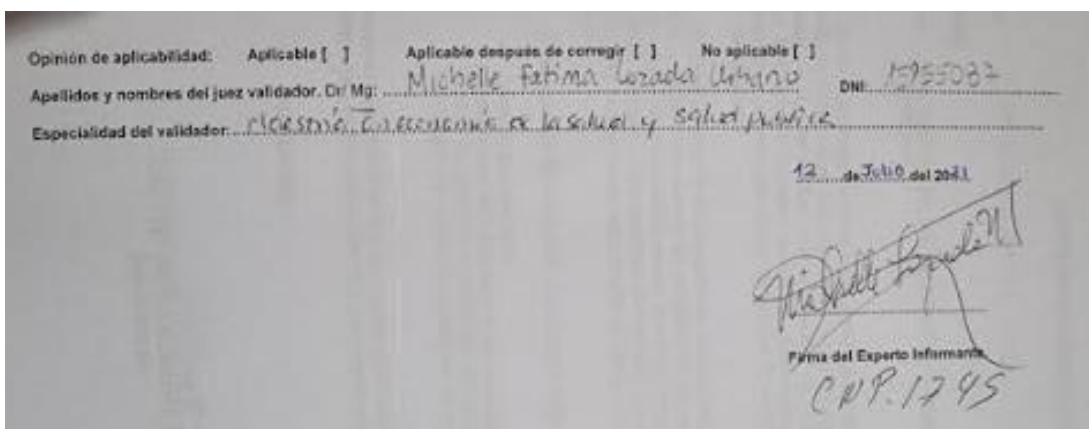 Opinión de aplicabilidad: Aplicable [ ] Aplicable después de corregir [ ] No aplicable [ ]
Apellidos y nombres del juez validador. Dr/ Mg: Michelle Fatima Lozada Urbano DNI: 15955087
Especialidad del validador: de la salud y salud pública
12 de Julio del 2021
Michelle Lozada U
Firma del Experto Informante
CNP. 1745